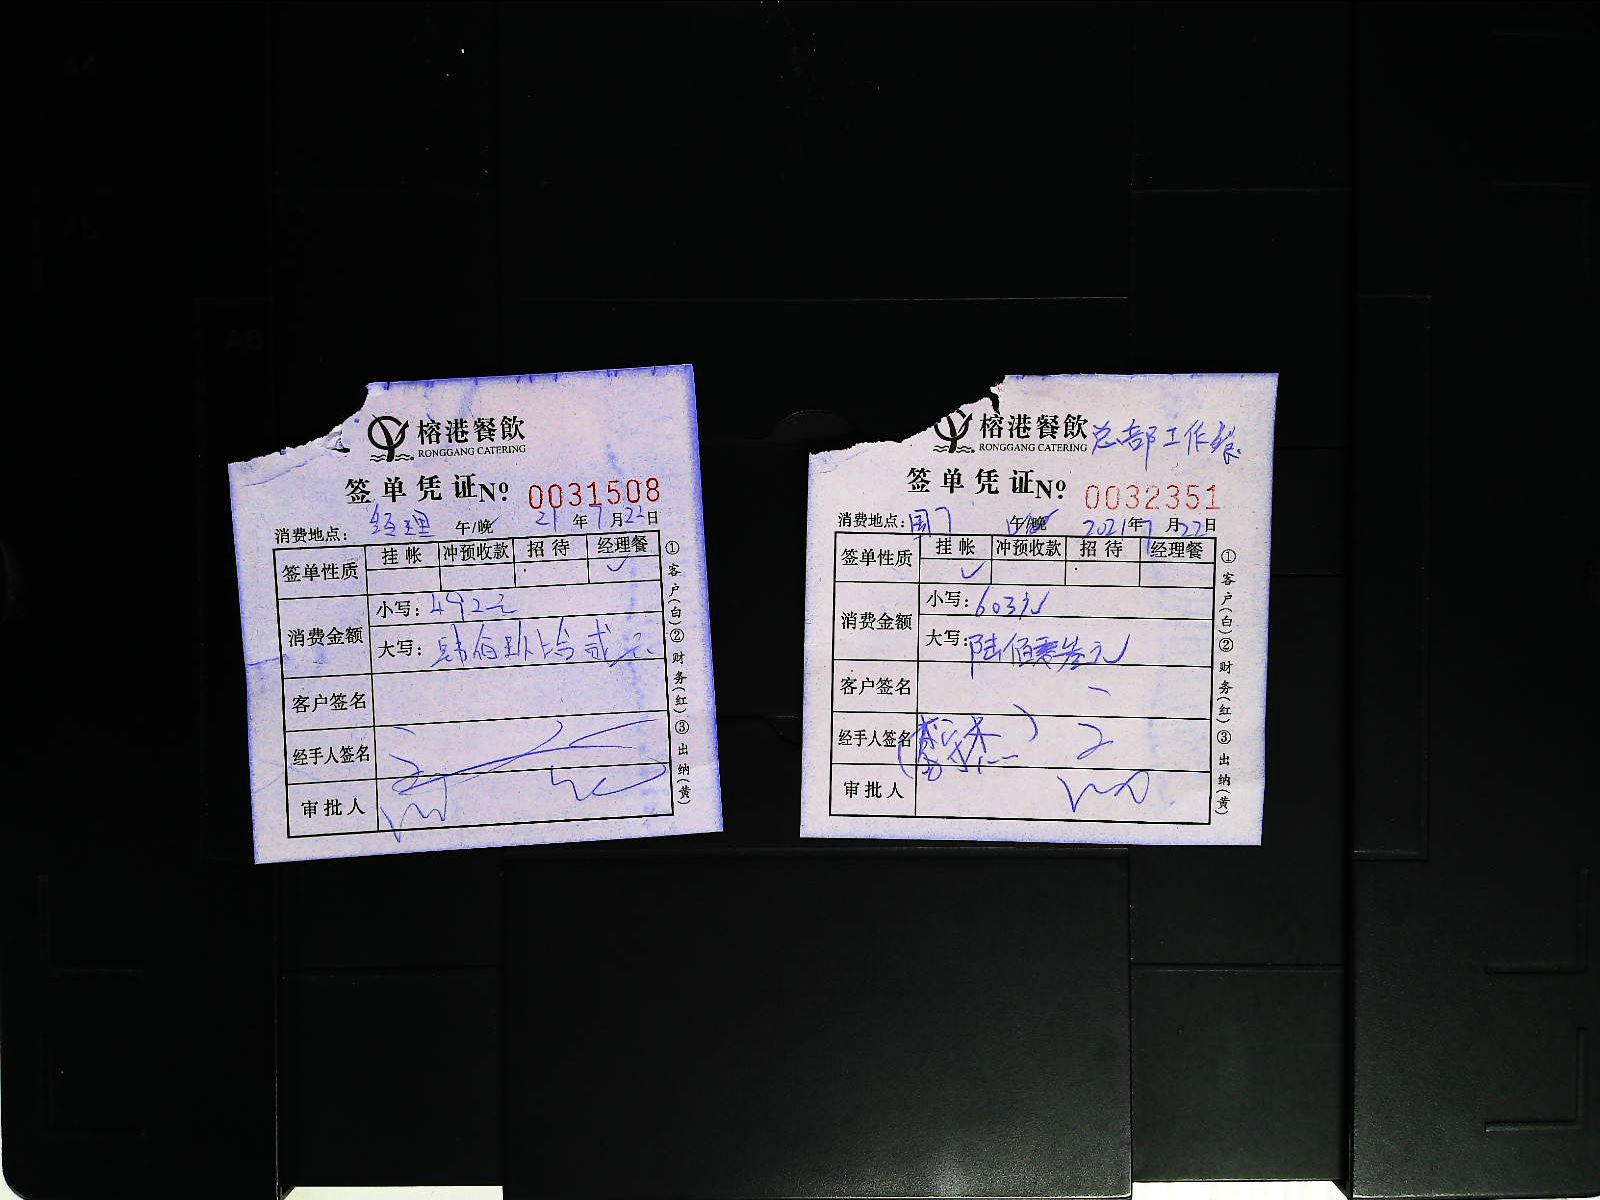 榕港餐飲
RONGGANG CATERING
签单凭证 Nº 0031508
消费地点: 经理 午/晚 21年7月22日
签单性质 挂帐 冲预收款 招待 经理餐
✓
消费金额 小写: 492元
大写: 肆佰玖拾贰元
客户签名
经手人签名
审批人
①客户(白)②财务(红)③出纳(黄)
榕港餐飲 总部工作餐
RONGGANG CATERING
签单凭证 Nº 0032351
消费地点: 午/晚 2021年7月22日
签单性质 挂帐 冲预收款 招待 经理餐
✓
消费金额 小写: 603元
大写: 陆佰零叁元
客户签名
经手人签名
审批人
①客户(白)②财务(红)③出纳(黄)